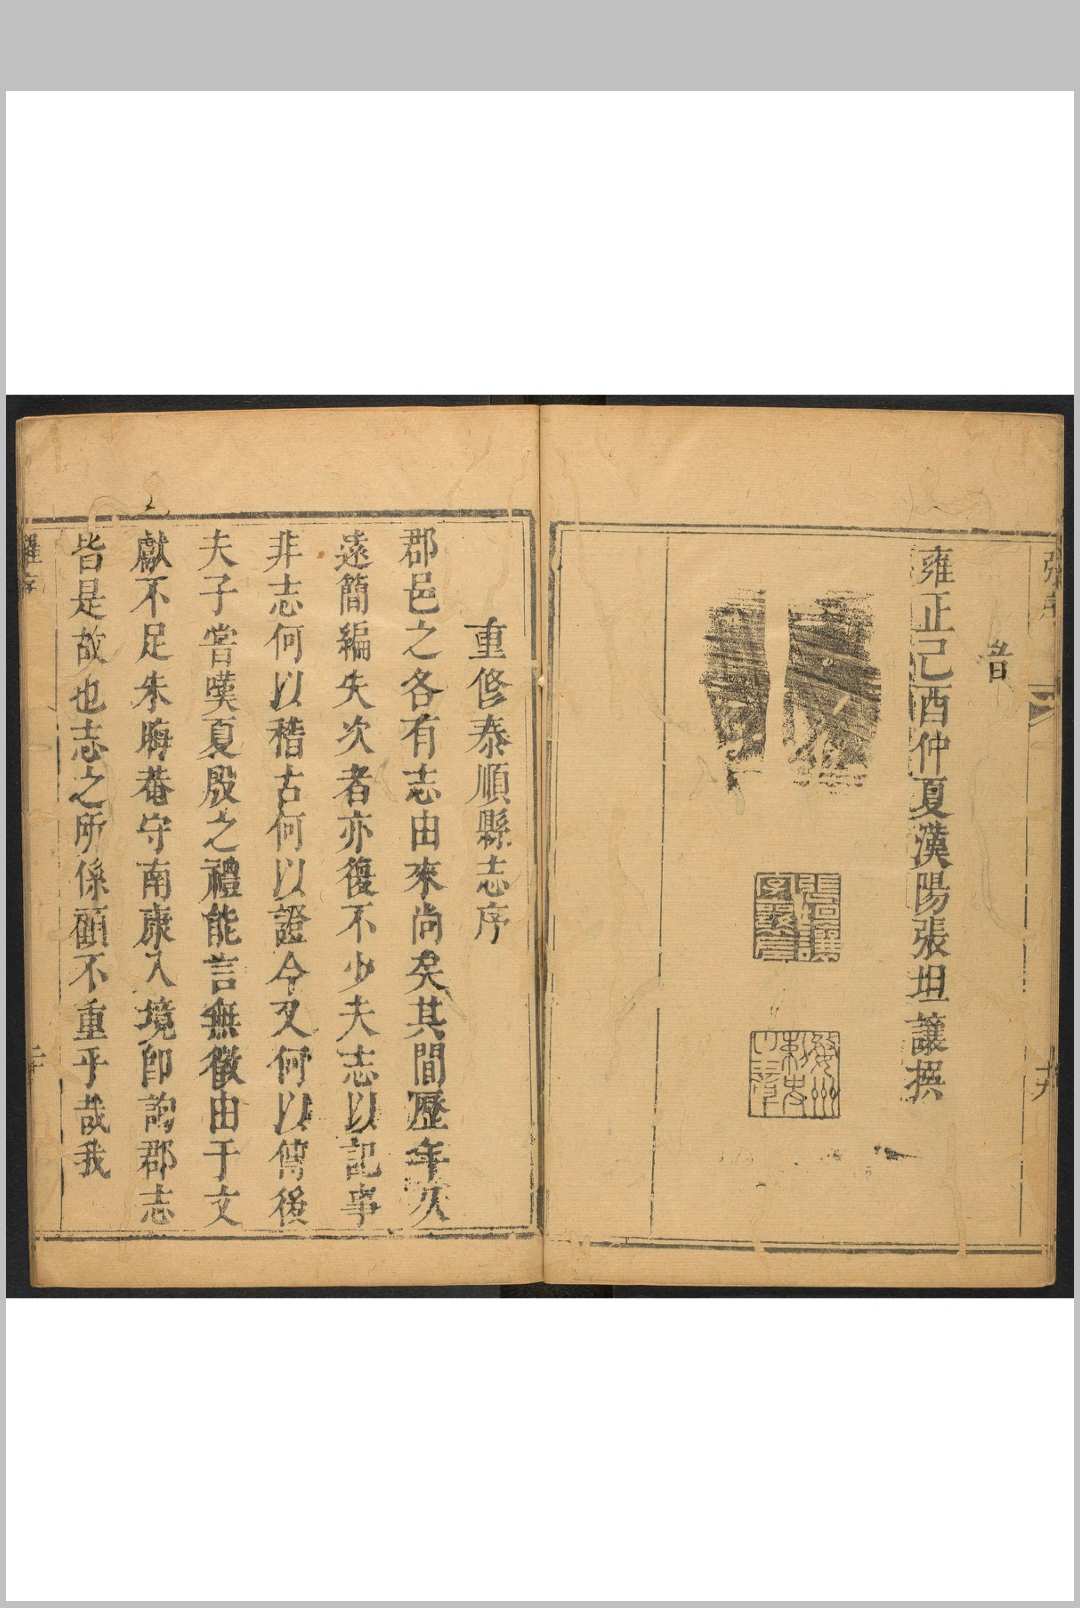 張序
十九
者
雍正己酉仲夏漢陽張坦讓撰
張坦讓
婺州
重修泰順縣志序
郡邑之各有志由來尚矣其間歷年久
遠簡編失次者亦復不少夫志以記事
非志何以稽古何以證今又何以傳後
夫子嘗嘆夏殷之禮能言無徵由于文
獻不足朱晦菴守南康入境即詢郡志
皆是故也志之所係顧不重乎哉我